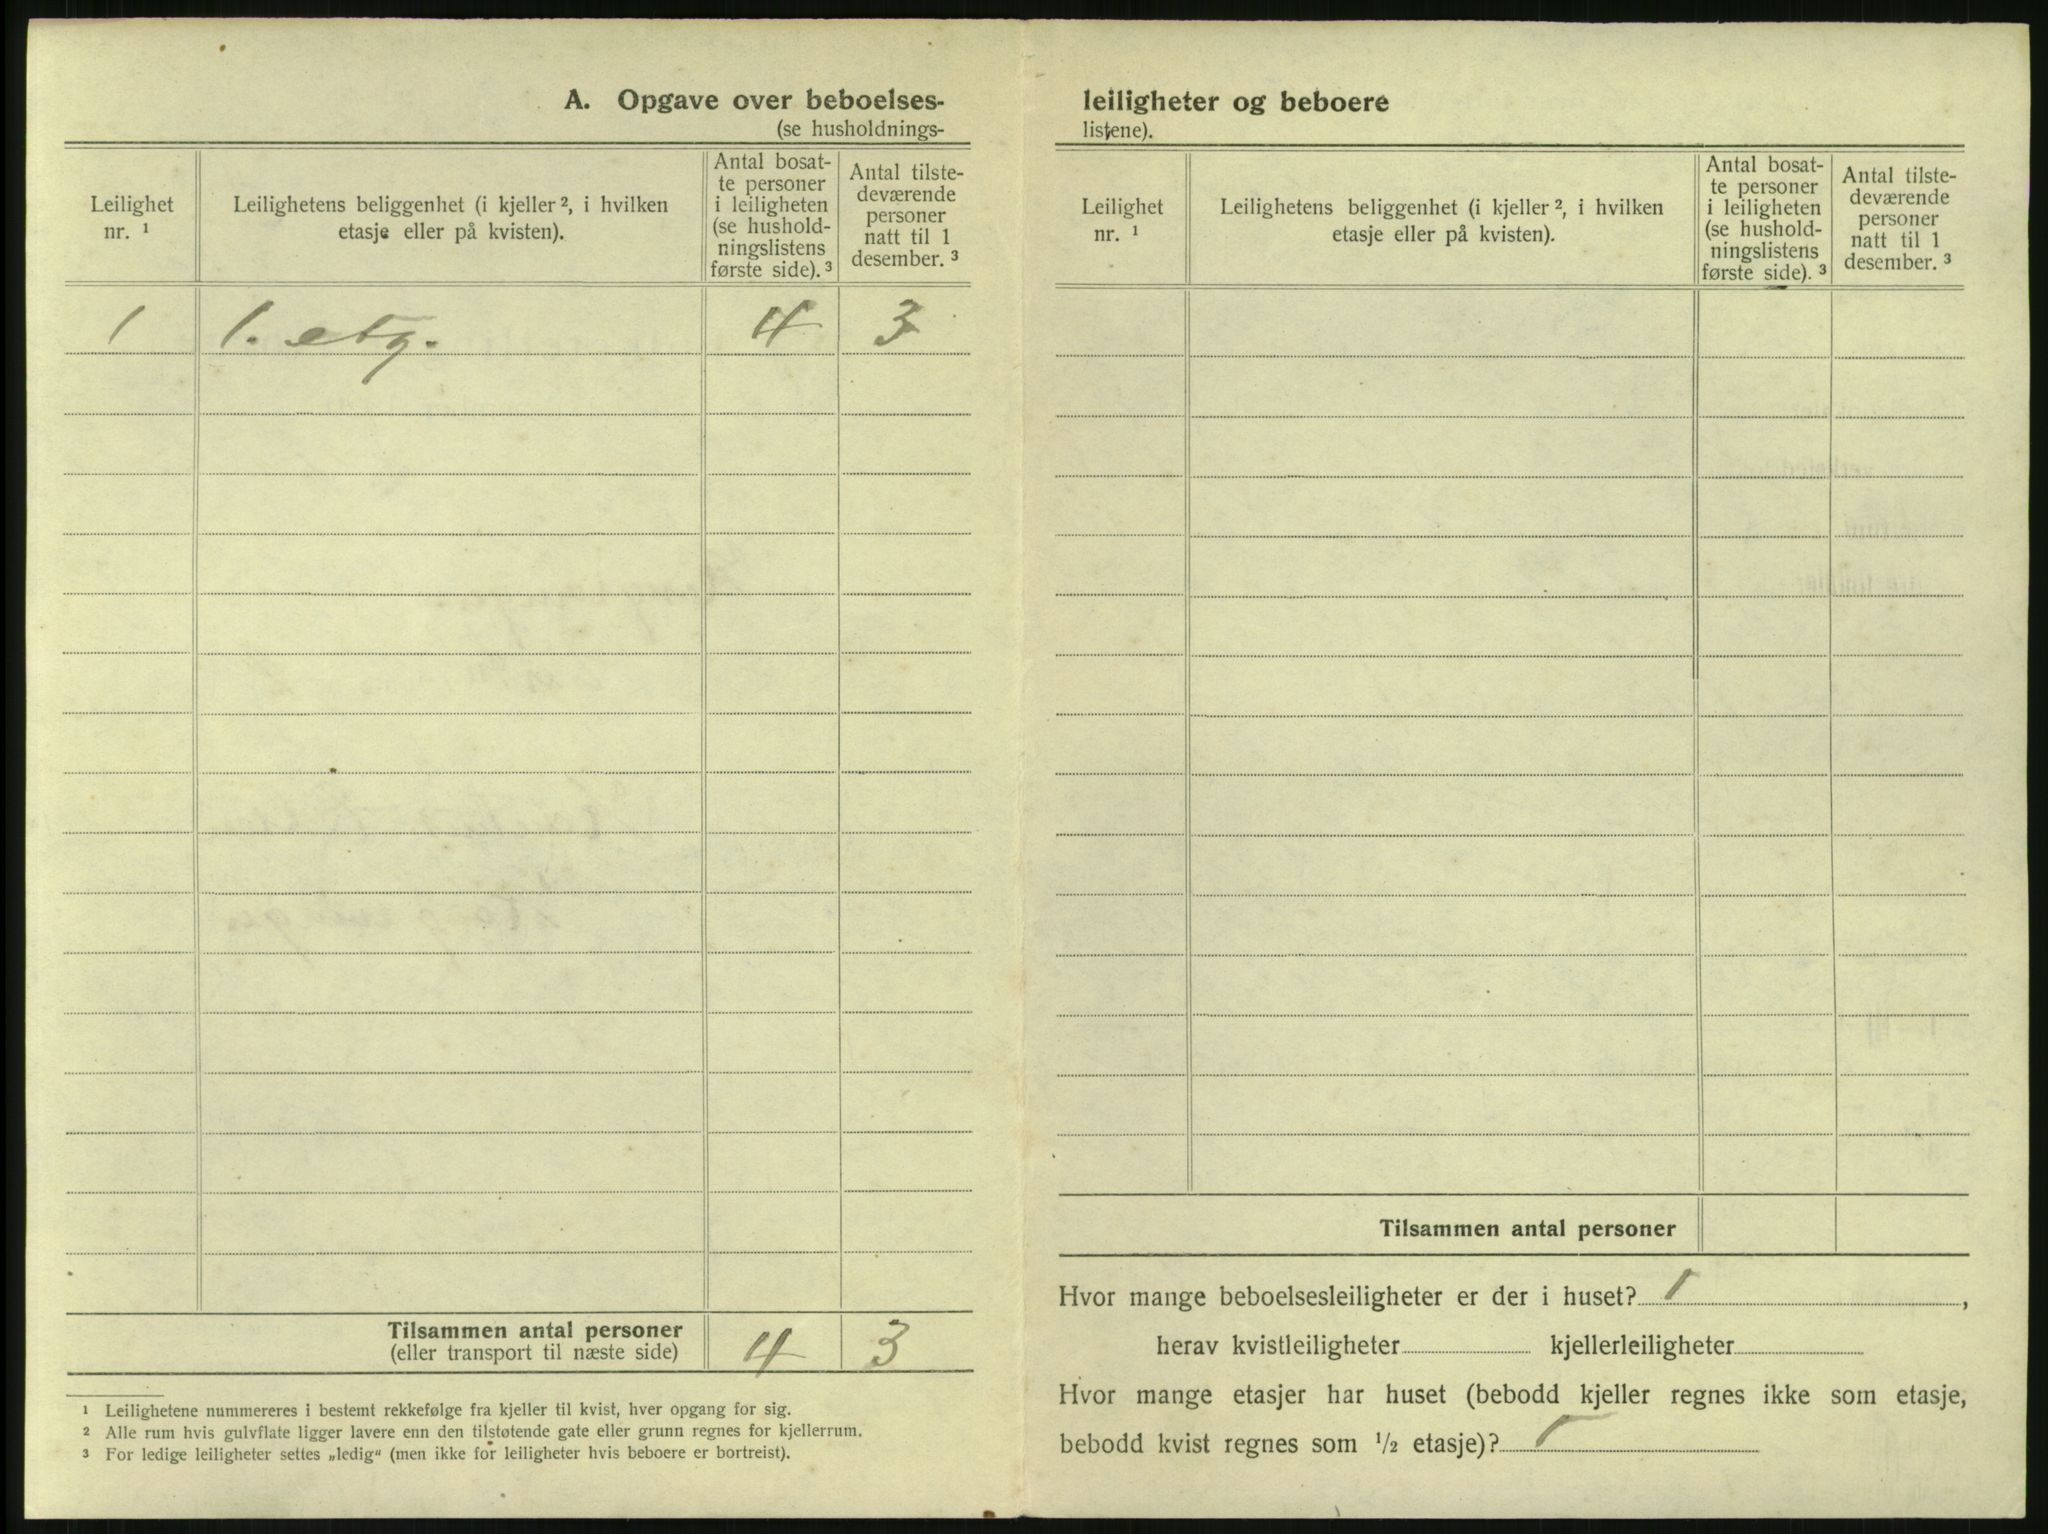 A. Opgave over beboelses-
(se husholdnings-
Leilighet
nr. ¹
Leilighetens beliggenhet (i kjeller ², i hvilken
etasje eller på kvisten).
Antal bosat-
te personer
i leiligheten
(se hushold-
ningslistens
første side). ³
Antal tilste-
deværende
personer
natt til 1
desember. ³
1 1. etg. 4 3
Tilsammen antal personer 4 3
(eller transport til næste side)
¹ Leilighetene nummereres i bestemt rekkefølge fra kjeller til kvist, hver opgang for sig.
² Alle rum hvis gulvflate ligger lavere enn den tilstøtende gate eller grunn regnes for kjellerrum.
³ For ledige leiligheter settes „ledig“ (men ikke for leiligheter hvis beboere er bortreist).
leiligheter og beboere
listene).
Leilighet
nr. ¹
Leilighetens beliggenhet (i kjeller ², i hvilken
etasje eller på kvisten).
Antal bosat-
te personer
i leiligheten
(se hushold-
ningslistens
første side). ³
Antal tilste-
deværende
personer
natt til 1
desember. ³
Tilsammen antal personer
Hvor mange beboelsesleiligheter er der i huset? 1,
herav kvistleiligheter kjellerleiligheter
Hvor mange etasjer har huset (bebodd kjeller regnes ikke som etasje,
bebodd kvist regnes som ½ etasje)? 1